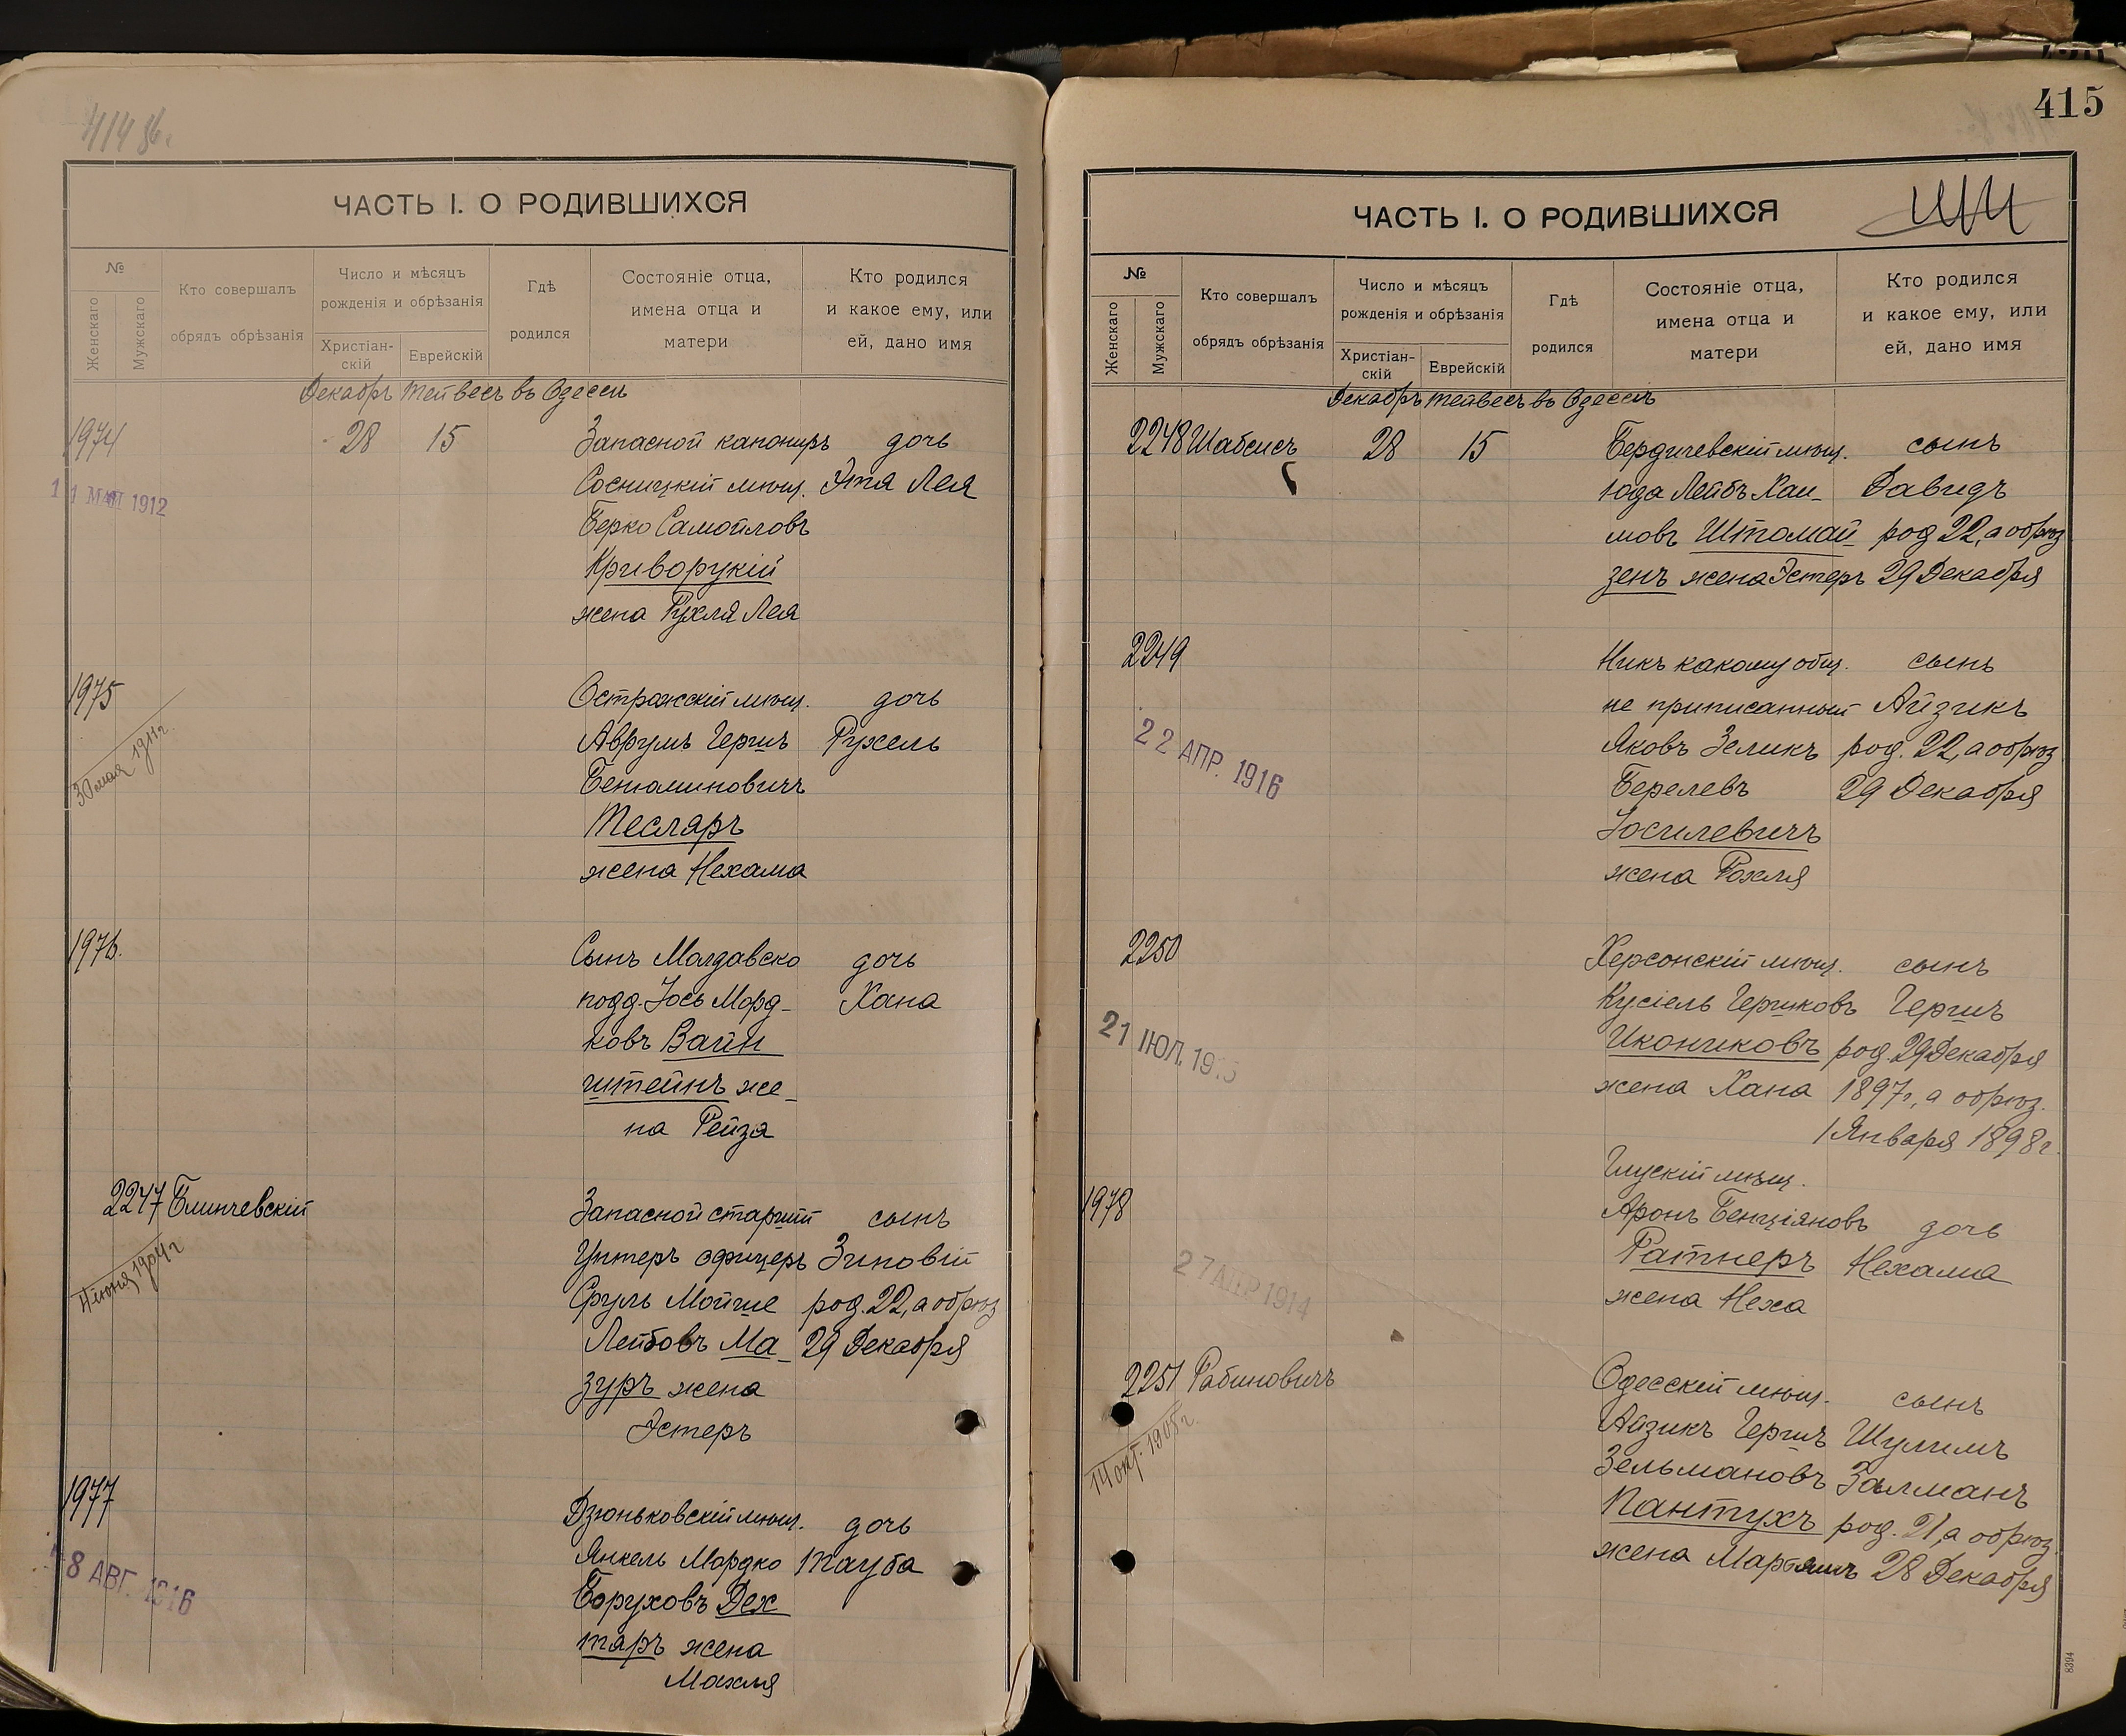 414 об.
ЧАСТЬ I. О РОДИВШИХСЯ
№
Женскаго
Мужскаго
Кто совершалъ
обрядъ обрѣзанія
Число и мѣсяцъ
рожденія и обрѣзанія
Христіан-
скій
Еврейскій
Гдѣ
родился
Состояніе отца,
имена отца и
матери
Кто родился
и какое ему, или
ей, дано имя
Декабрь Тейвесъ въ Одессѣ
1974 28 15 Запасной канониръ дочь
11 МАЯ 1912
Сосницкій мѣщ. Этя Лея
Берко Самойловъ
Криворукій
жена Рухля Лея
1975 Остражскій мѣщ. дочь
30 мая 1911г.
Аврумъ Гершъ Рухель
Бенюминовичъ
Тесляръ
жена Нехама
1976. Сынъ Молдавско дочь
подд. Іось Морд- Хана
ковъ Вайн
штейнъ же-
на Рейза
2247 Блинчевскій Запасной старшій сынъ
4 іюня 1904г
Унтеръ офицеръ Зиновій
Сруль Мойше род. 22, а обрѣз
Лейбовъ Ма- 29 Декабря
зуръ жена
Эстеръ
1977 Дзюньковскій мѣщ. дочь
8 АВГ. 1916
Янкель Мордко Тауба
Боруховъ Дех
таръ жена
Махля
415
ЧАСТЬ I. О РОДИВШИХСЯ
№
Женскаго
Мужскаго
Кто совершалъ
обрядъ обрѣзанія
Число и мѣсяцъ
рожденія и обрѣзанія
Христіан-
скій
Еврейскій
Гдѣ
родился
Состояніе отца,
имена отца и
матери
Кто родился
и какое ему, или
ей, дано имя
Декабрь Тейвесъ въ Одессѣ
2248 Шабсисъ 28 15 Бердичевскій мѣщ. сынъ
Іода Лейбъ Хаи- Давидъ
мовъ Штомай- род 22, а обрѣз
зенъ жена Эстеръ 29 Декабря
2249 Никъ какому общ. сынъ
не приписанный Айзикъ
22 АПР. 1916
Яковъ Зеликъ род. 22, а обрѣз
Берелевъ 29 Декабря
Іосилевичъ
жена Рохля
2250 Херсонскій мѣщ. сынъ
Кусіель Гершковъ Гершъ
21 ІЮЛ. 191
Икониковъ род. 29 Декабря
жена Хана 1897г, а обрѣз.
1 Января 1898г.
Глускій мѣщ.
1978 Аронъ Бенціяновъ дочь
27 АПР 1914
Ратнеръ Нехама
жена Неха
2251 Рабиновичъ Одесскій мѣщ. сынъ
14 окт. 1905г.
Айзикъ Гершъ Шулимъ
Зельмановъ Залманъ
Пантухъ род. 21, а обрѣз.
жена 28 Декабря
8394